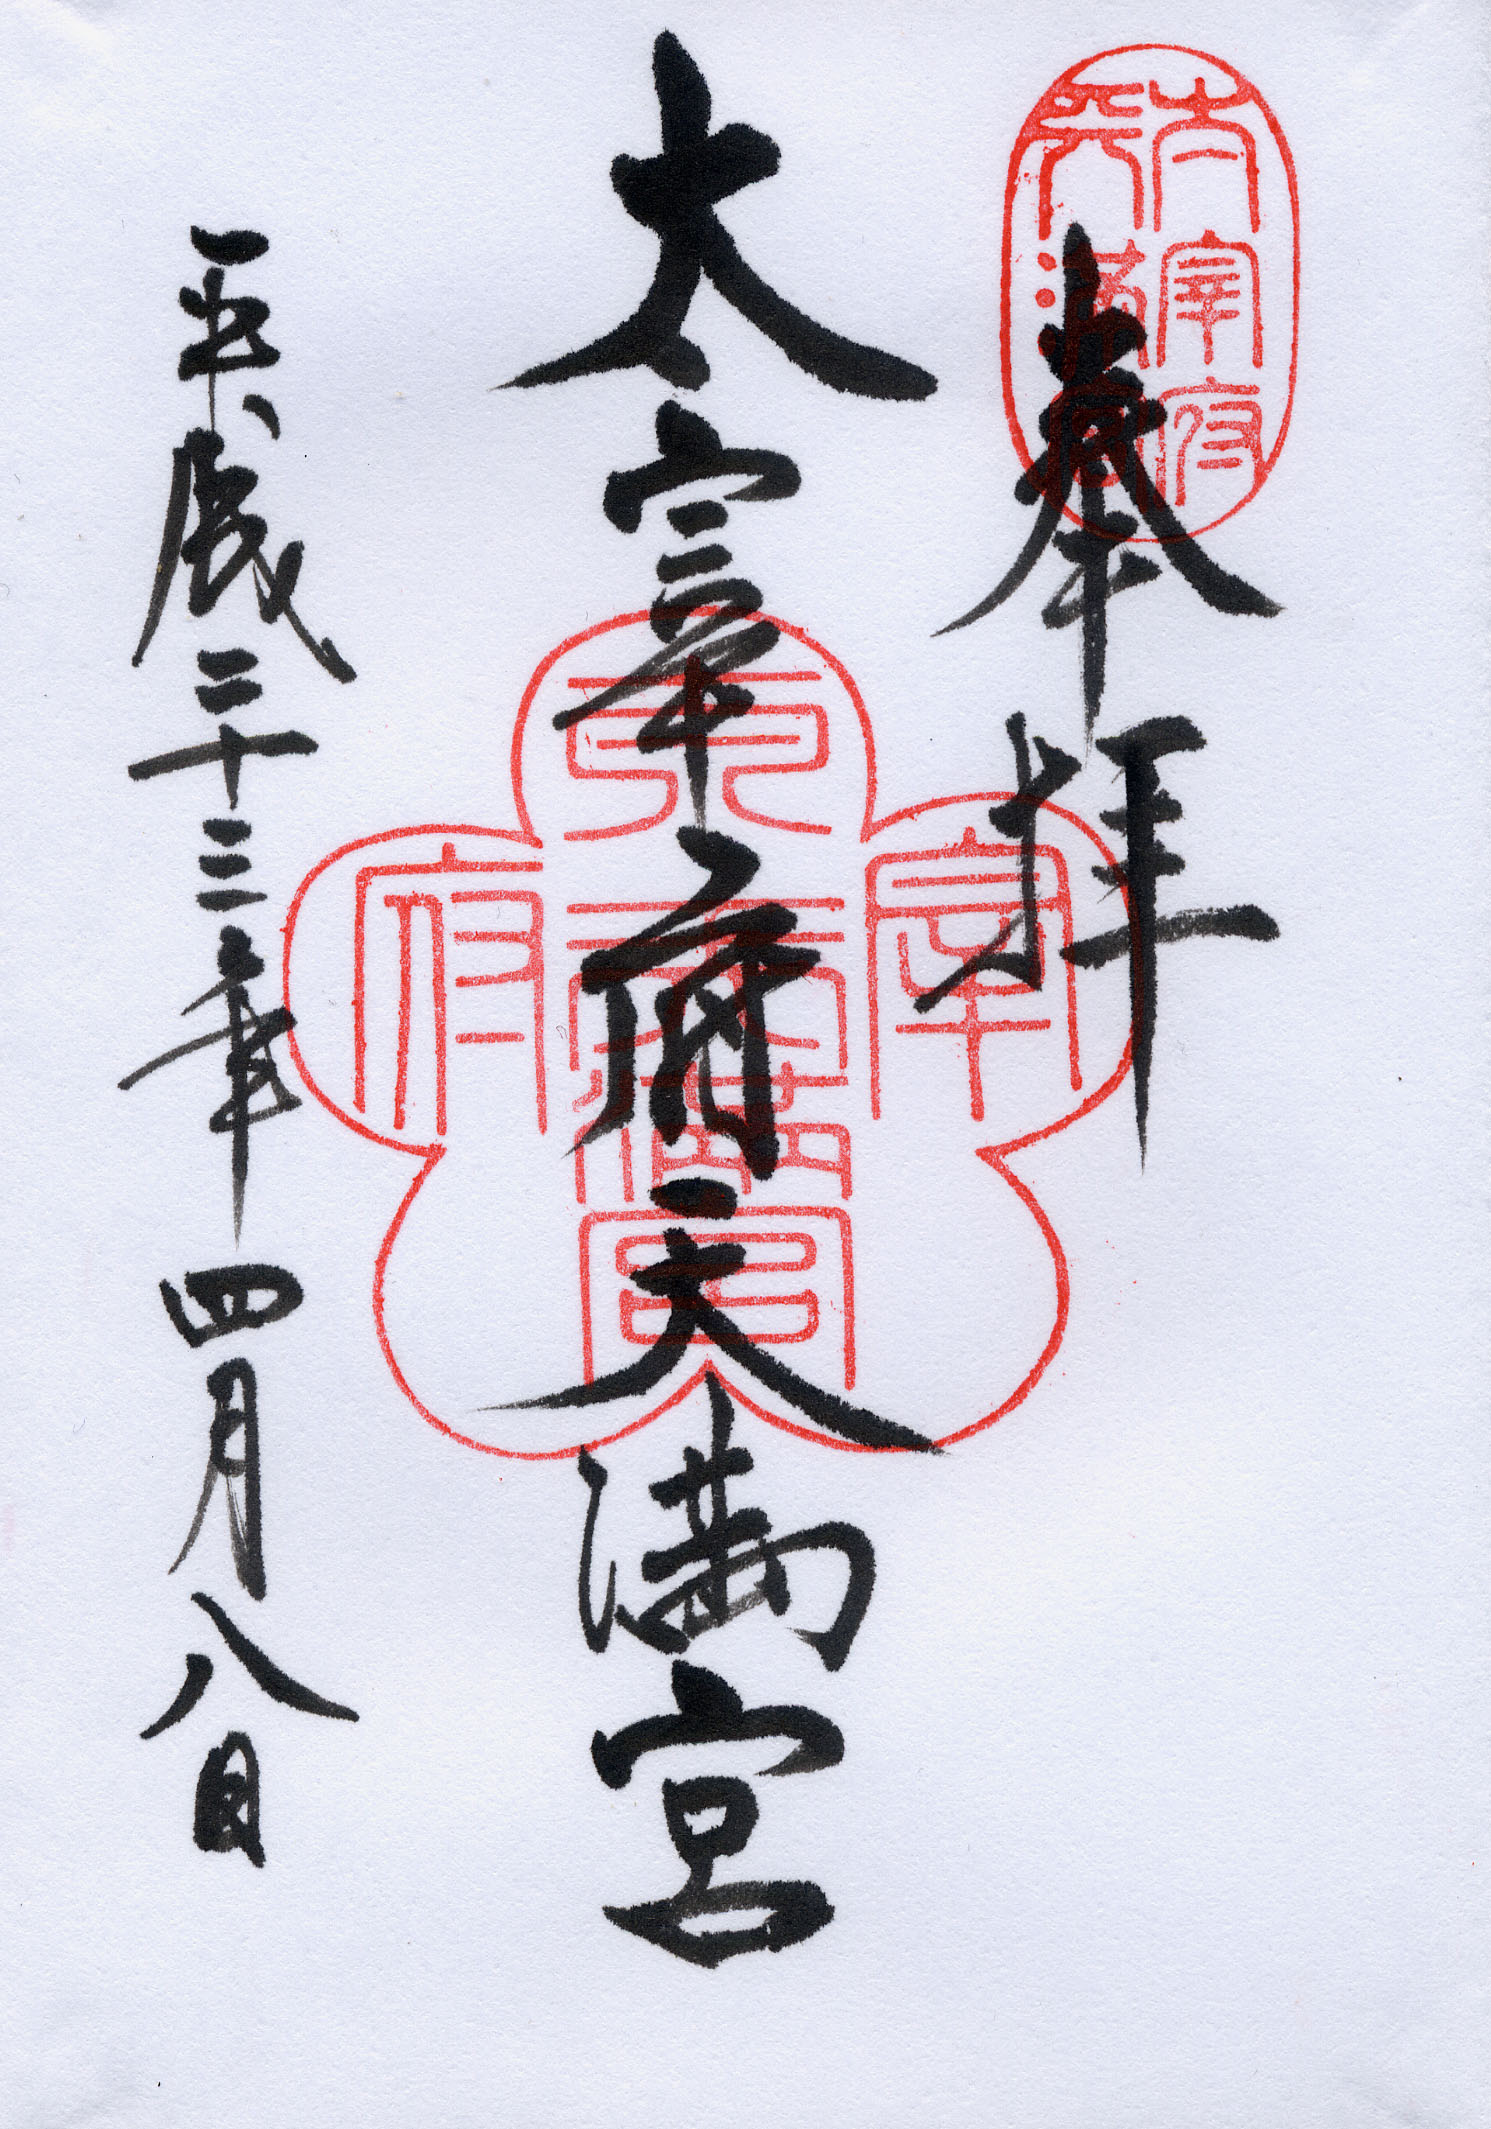 太宰府
天満宮
奉拝
太宰府天満宮
太宰府
天満宮
平成二十三年四月八日